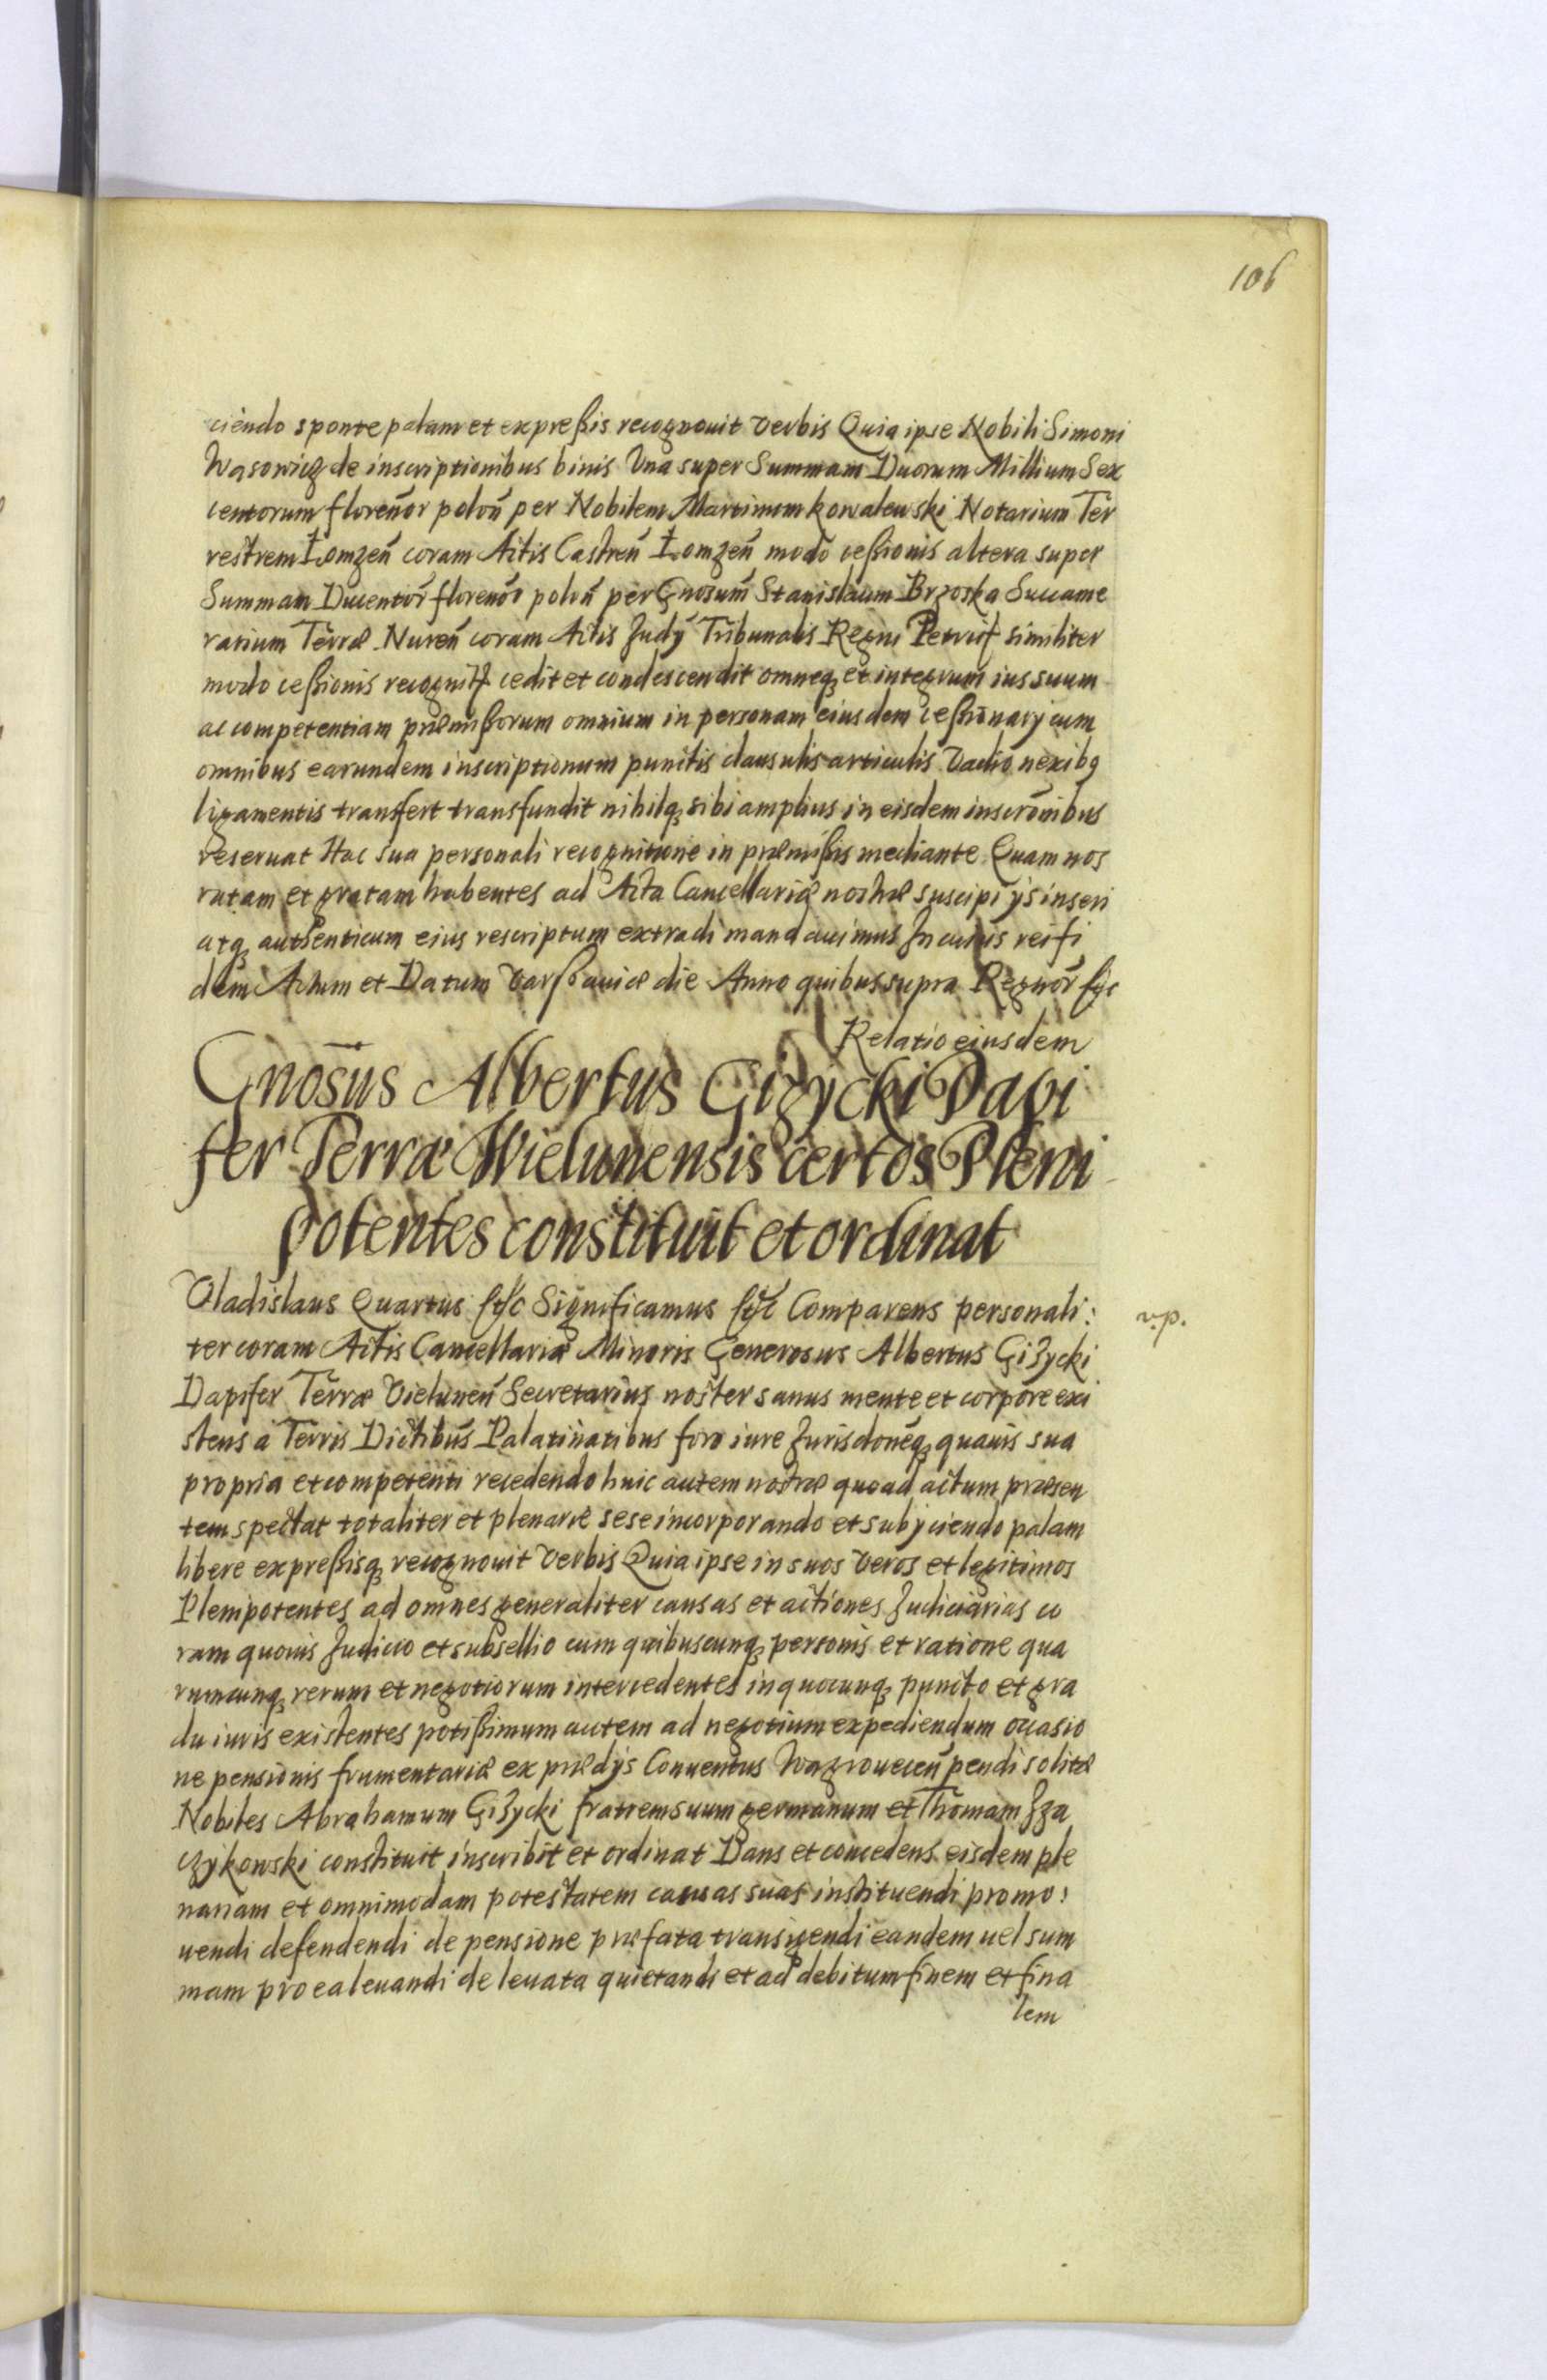 106
ciendo sponte palam et expreßis recognouit verbis Quia ipse Nobili Simoni
Wąsowicz de inscriptionibus binis Vna super Summam Duorum Millium Sex
centorum floreñor poloñ per Nobilem Martinum Kowalewski Notarium Ter
restrem Łomzeñ coram Actis Castreñ Łomzeñ modo ceßionis altera super
Summam Ducentor̃ florenor̃ poloñ per Gnosum̃ Stanislaum Brzoska Succame
rarium Terræ Nureñ coram Actis Judÿ Tribunalis Regni Petric̃ similiter
modo ceßionis recognit̃ cedit et condescendit omneq et integrum ius suum
ac competentiam præmißorum omnium in personam eiusdem ceßionarÿ cum
omnibus earundem inscriptionum punctis clausulis articulis Vadio nexibq
ligamentis transfert transfundit nihilq sibi amplius in eisdem inscrõnibus
reseruat Hac sua personali recognitione in præmißis mediante Quam nos
ratam et gratam habentes ad Acta Cancellariæ nostræ suscipi ÿs inseri
atq authenticum eius rescriptum extradi mandauimus In cuius rei fi
dem Actum et Datum Varßauiæ die Anno quibus supra Regnor̃ &c
Relatio eiusdem
Gnosus Albertus Gizycki Dapi
fer Terræ Wielunensis certos Pleni
potentes constituit et ordinat
Vladislaus Quartus &c Significamus &c Comparens personali:
v.p.
ter coram Actis Cancellariæ Minoris Generosus Albertus Giżycki
Dapifer Terræ Vieluneñ Secretarius noster sanus mente et corpore exi
stens a Terris Dictibus̃ Palatinatibus foro iure Jurisdoneq̃ quauis sua
propria et competenti recedendo huic autem nostræ quoad actum præsen
tem spectat totaliter et plenarie sese incorporando et subÿciendo palam
libere expreßisq recognouit verbis Quia ipse in suos veros et legitimos
Plenipotentes ad omnes generaliter causas et actiones Judiciarias co
ram quouis Judicio et subsellio cum quibuscunq personis et ratione qua
rumcunq rerum et negotiorum intercedentes in quocunq puncto et gra
du iuris existentes potißimum autem ad negotium expediendum occasio
ne pensionis frumentariæ ex prædÿs Conuentus Wagroueceñ pendi solitæ
Nobiles Abrahamum Giżycki fratrem suum germanum et Thomam Jza
czykowski constituit inscribit et ordinat Dans et concedens eisdem ple
nariam et omnimodam potestatem causas suas instituendi promo:
uendi defendendi de pensione præfata transigendi eandem uel sum
mam pro ea leuandi de leuata quietandi et ad debitum finem et fina
lem